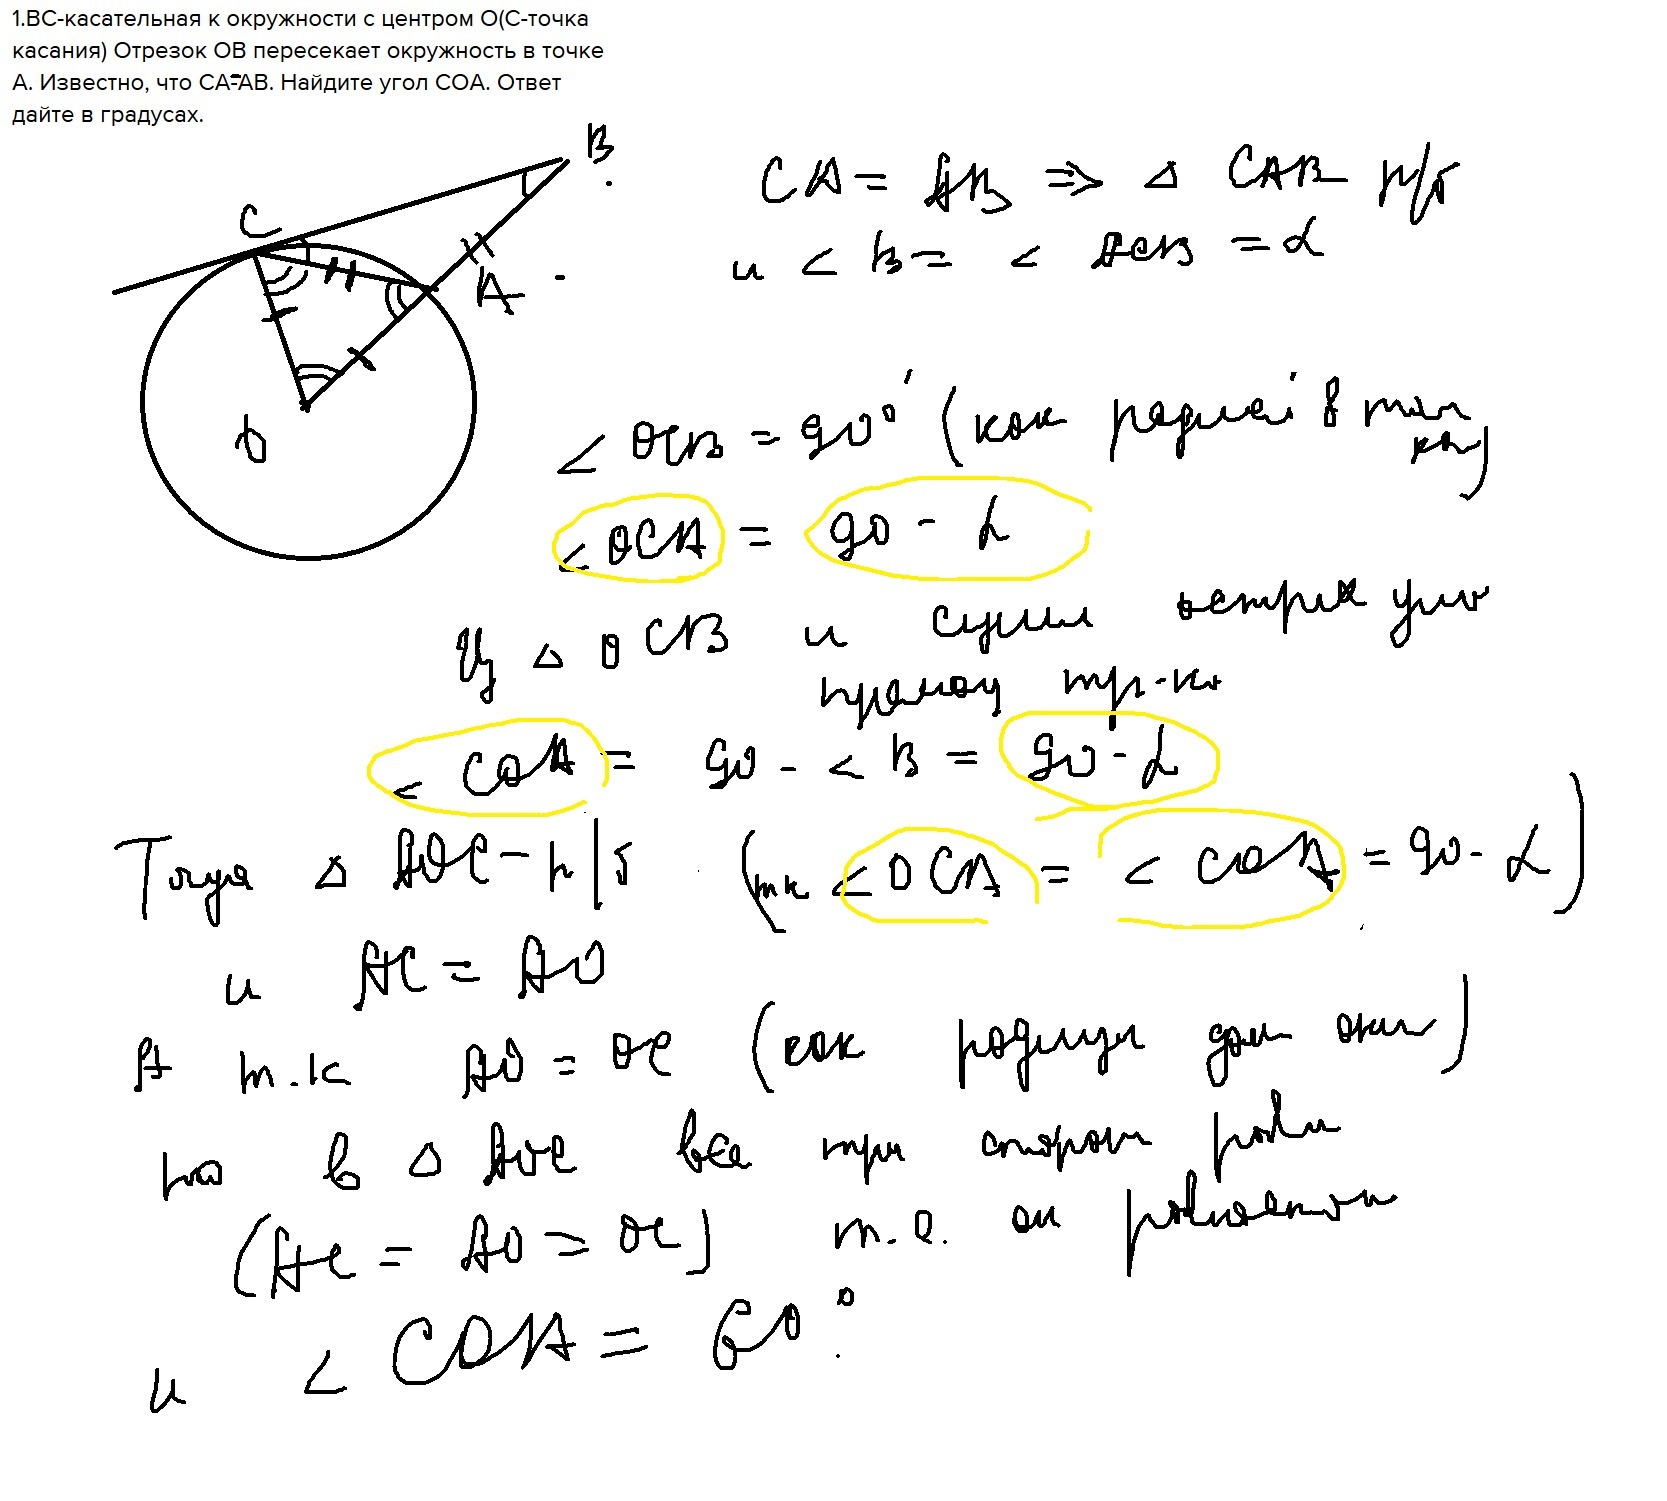 1.ВС-касательная к окружности с центром О(С-точка
касания) Отрезок ОВ пересекает окружность в точке
А. Известно, что СА=АВ. Найдите угол СОА. Ответ
дайте в градусах.
B
C
A
O
CA = AB ⇒ △ CAB р/б
и < B = < ACB = α
< OCB = 90° (как радиус в точ
кас)
< OCA = 90 - α
Из △ OCB и сумм острых угло
прямоуг тр-ка
< COA = 90 - < B = 90 - α
Тогда △ AOC - р/б (тк < OCA = < COA = 90 - α)
и AC = AO
А т.к AO = OC (как радиусы дан окр)
то в △ AOC все три стороны равны
(AC = AO = OC) т.е. он равносторон
и < COA = 60°.